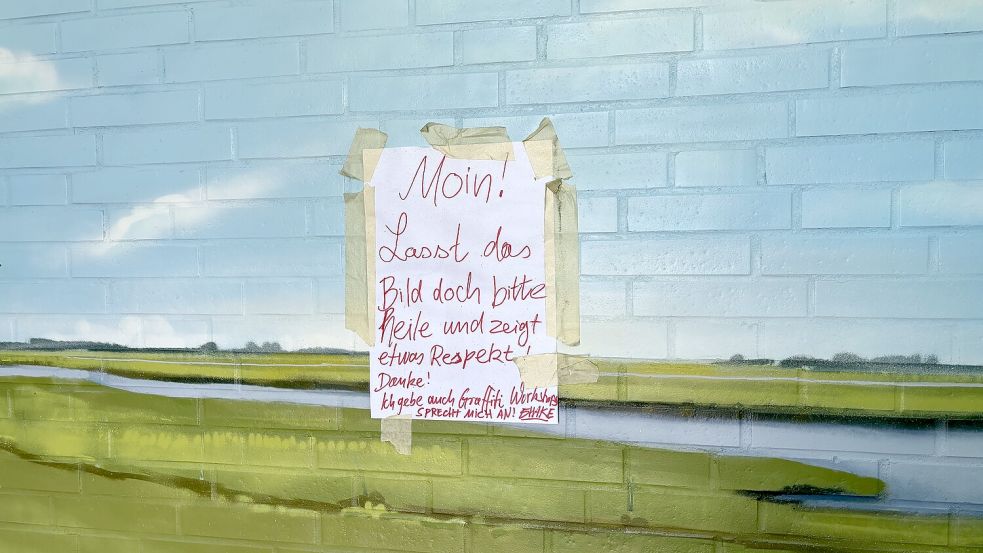 Moin!
Lasst das
Bild doch bitte
heile und zeigt
etwas Respekt!
Danke!
Ich gebe auch Graffiti Workshops
SPRECHT MICH AN!